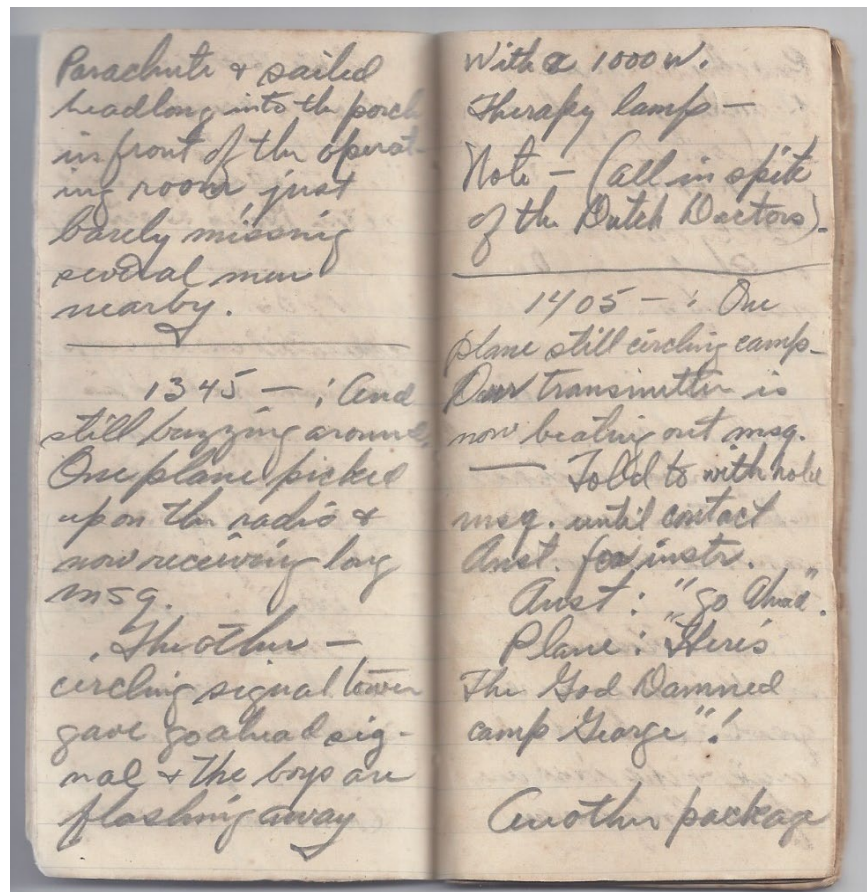 Parachute & sailed
headlong into the porch
in front of the operat-
ing room, just
barely missing
several men
nearby.
1345 — ; And
still buzzing around.
One plane picked
up on the radio &
now receiving long
msg.
The other —
circling signal tower
gave goahead sig-
nal & the boys are
flashing away
With a 1000 W.
Therapy lamp —
Note — (all in spite
of the Dutch Doctors).
1405 — ; One
plane still circling camp.
Our transmitter is
now beating out msg.
— Told to withhold
msg. until contact
Aust. for instr.
Aust : "go ahead".
Plane : "Here's
The God Damned
camp George"!
Another package